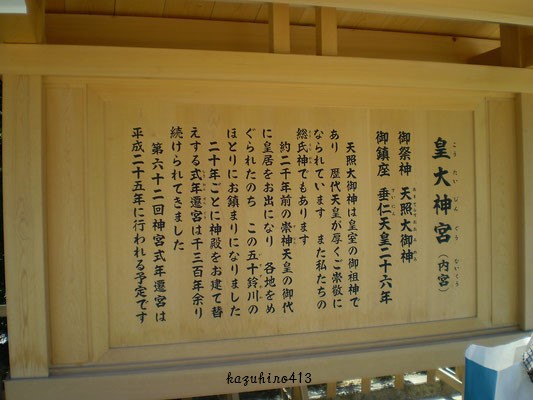 皇大神宮（内宮）
御祭神　天照大御神
御鎮座　垂仁天皇二十六年
天照大御神は皇室の御祖神で
あり　歴代天皇が厚くご崇敬に
なられています　また私たちの
総氏神でもあります
約二千年前の崇神天皇の御代
に皇居をお出になり　各地をめ
ぐられたのち　この五十鈴川の
ほとりにお鎮まりになりました
二十年ごとに神殿をお建て替
えする式年遷宮は千三百年余り
続けられてきました
第六十二回神宮式年遷宮は
平成二十五年に行われる予定です
kazuhiro413